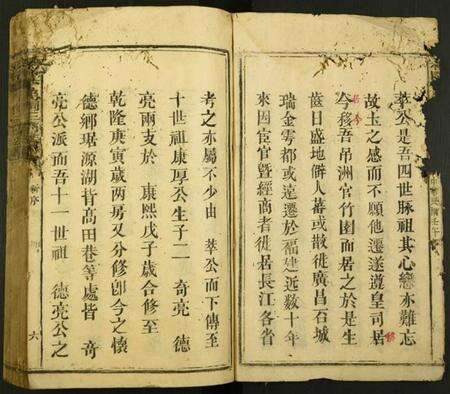 萃公是吾四世脉祖其心戀亦難忘
故土之感而不願他遷遂遵皇司居
今移吾吊洲官竹園而居之於是生
齒日盛地僻人蕃或散徙廣昌石城
瑞金雩都或遠遷於福建近数十年
來因宦官曁經商者徙居長江各省
考之亦屬不少由 萃公而下傳至
十世祖康厚公生子二 奇亮 德
亮兩支於 康熙戊子歳合修至
乾隆庚寅歳两房又分修卽今之懷
德鄉琚源湖背髙田巷等處皆 奇
亮公派而吾十一世祖 德亮公之
新序
六